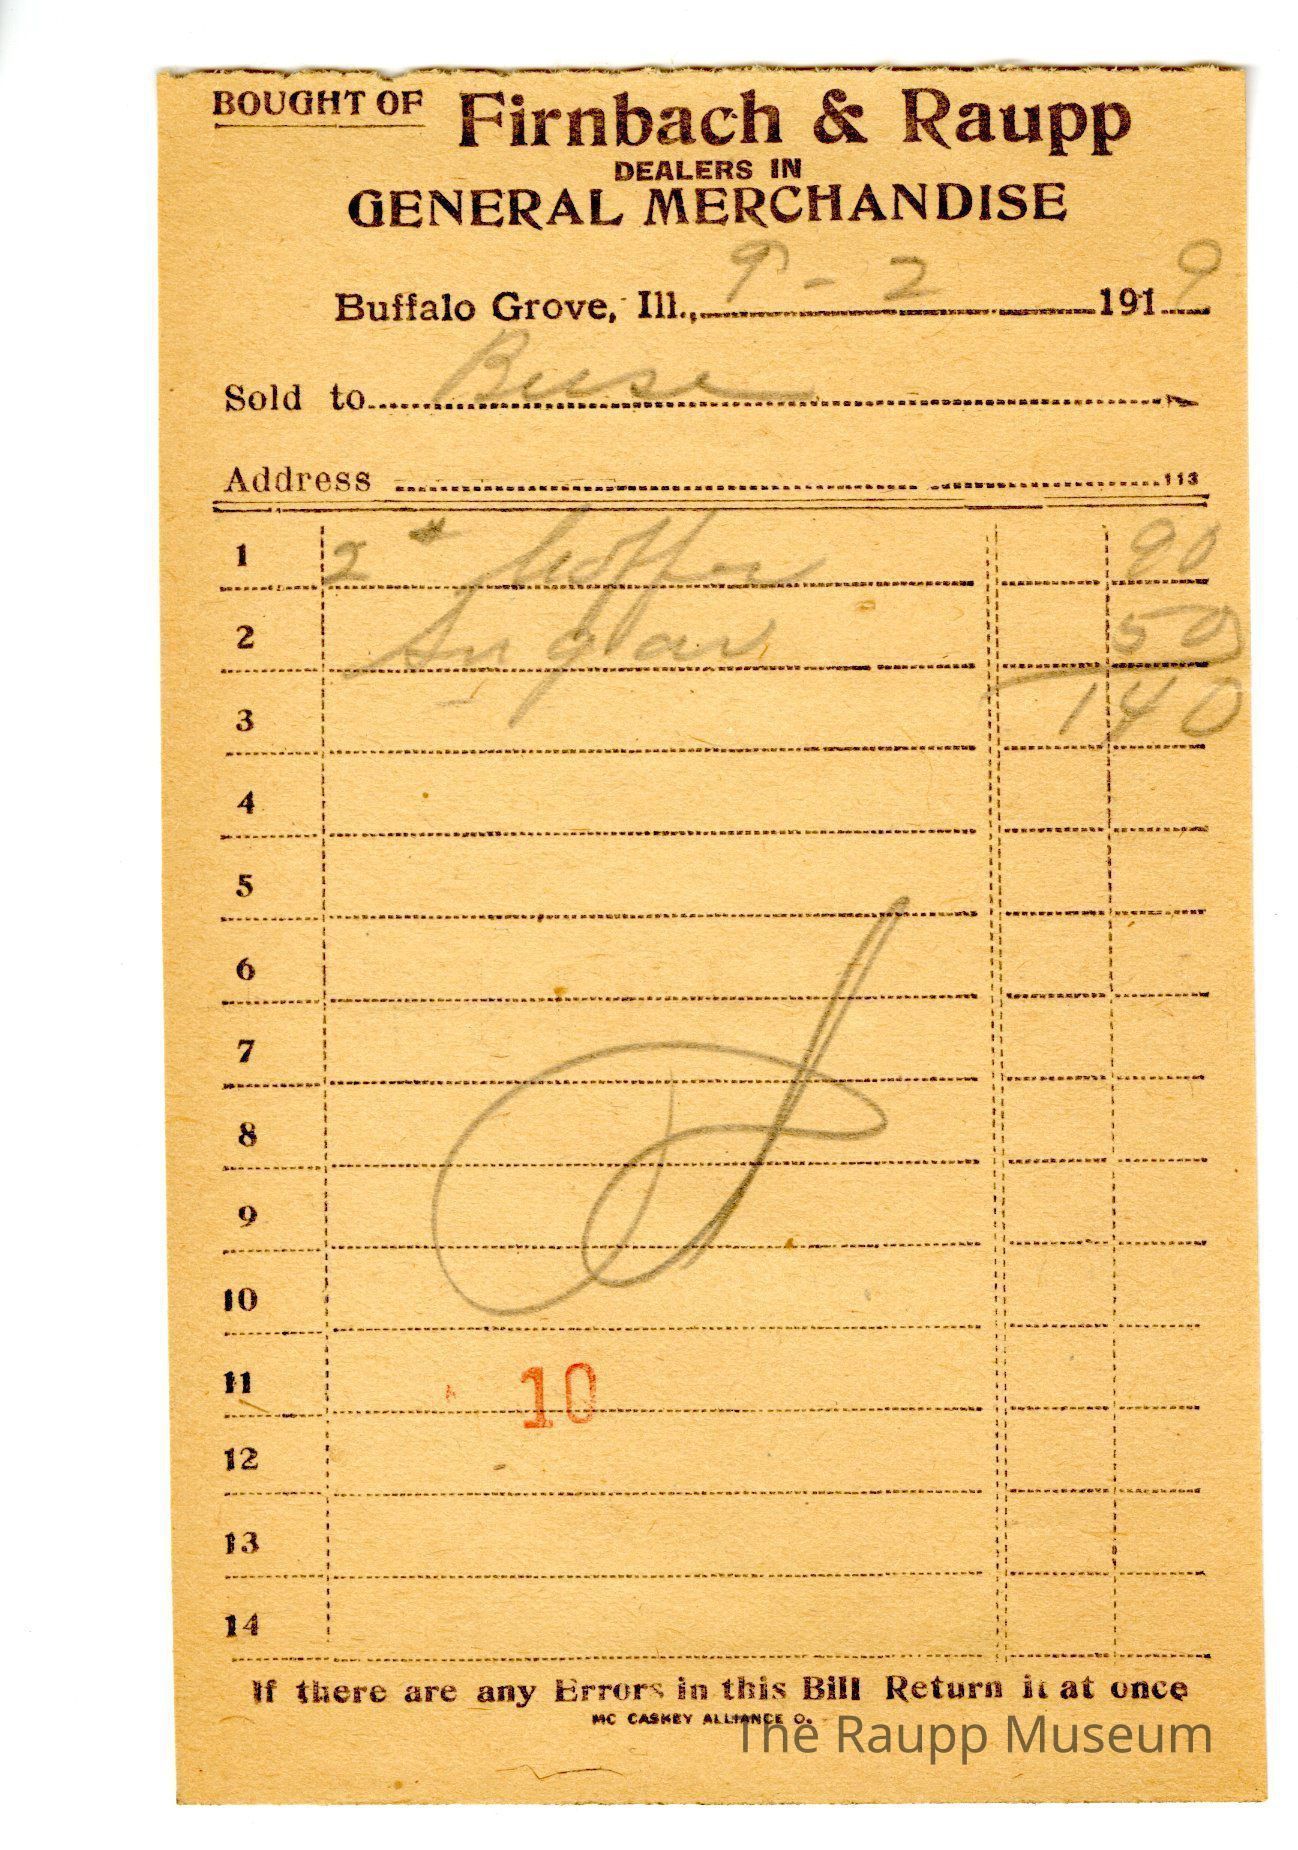 BOUGHT OF Firnbach & Raupp
DEALERS IN
GENERAL MERCHANDISE
Buffalo Grove, Ill., 9-2 1919
Sold to Buse
Address 113
1 2 # Coffee 90
2 Sugar 50
3 140
4
5
6
7
8
9
10
11 10
12
13
14
If there are any Errors in this Bill Return it at once
MC CASKEY ALLIANCE O.
The Raupp Museum